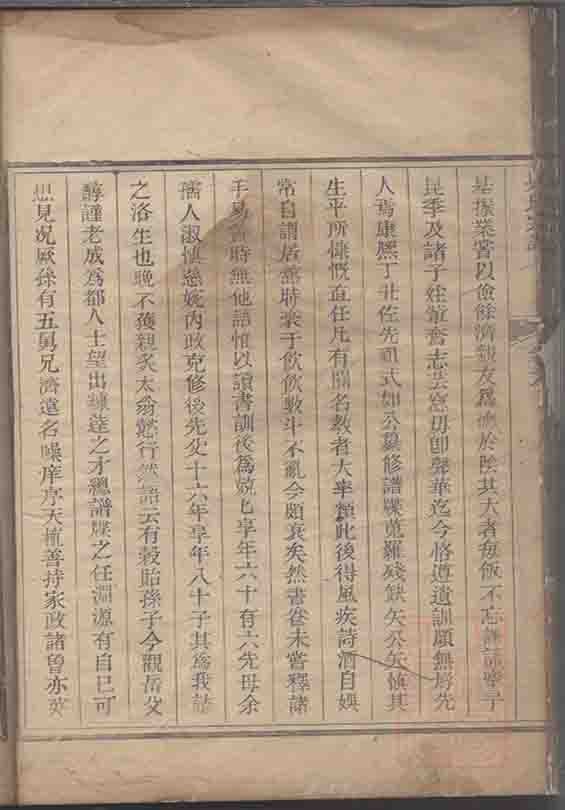 基振業嘗以儉餘濟親友為 於 其大者每飯不忘 
昆季及諸子姪輩奮志芸窓毋卽聲華迄今恪遵遺訓願無辱先
人焉康熙丁丑佐先祖式如公纂修譜牒蒐羅殘缺矢公矢慎其
生平所慷慨直任凡有關名教者大率類此後得風疾詩酒自娛
常自謂居當時豪于飲飲數斗不亂今頗衰矣然書卷未嘗釋諸
手易簀時無他語惟以讀書訓後為兢兢享年六十有六先母余
孺人淑慎慈婉內政克修後先父十六年享年八十子其為我誌
之洛生也晚不獲親炙太翁懿行然語云有穀貽孫子今觀岳父
諄謹老成為都人士望出練達之才總譜牒之任淵源有自已可
想見况厥孫有五舅兄濟遠名噪庠序天 善持家政諸曾亦英